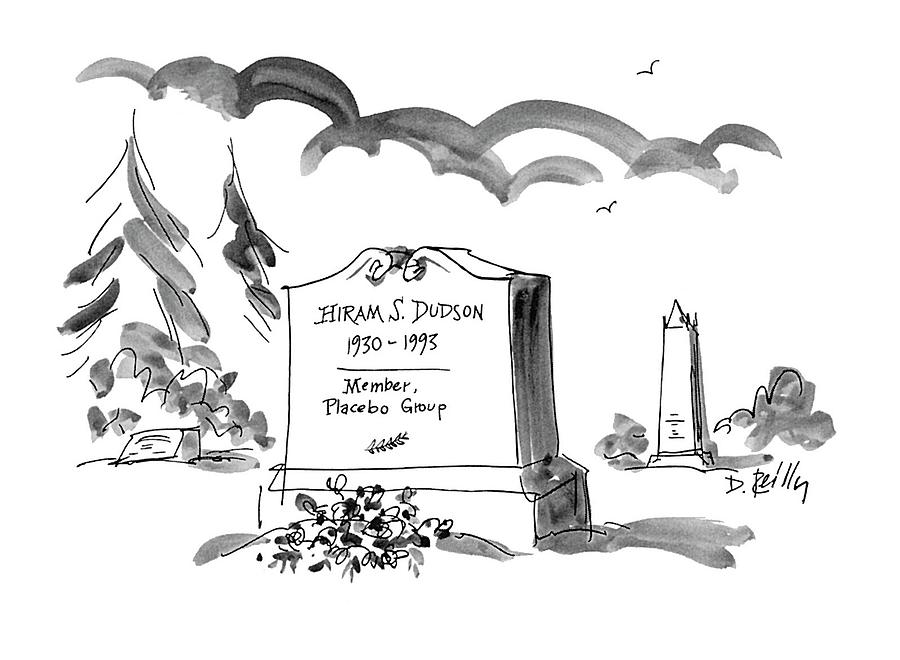 HIRAM S. DUDSON
1930 - 1993
Member,
Placebo Group
D. Reilly